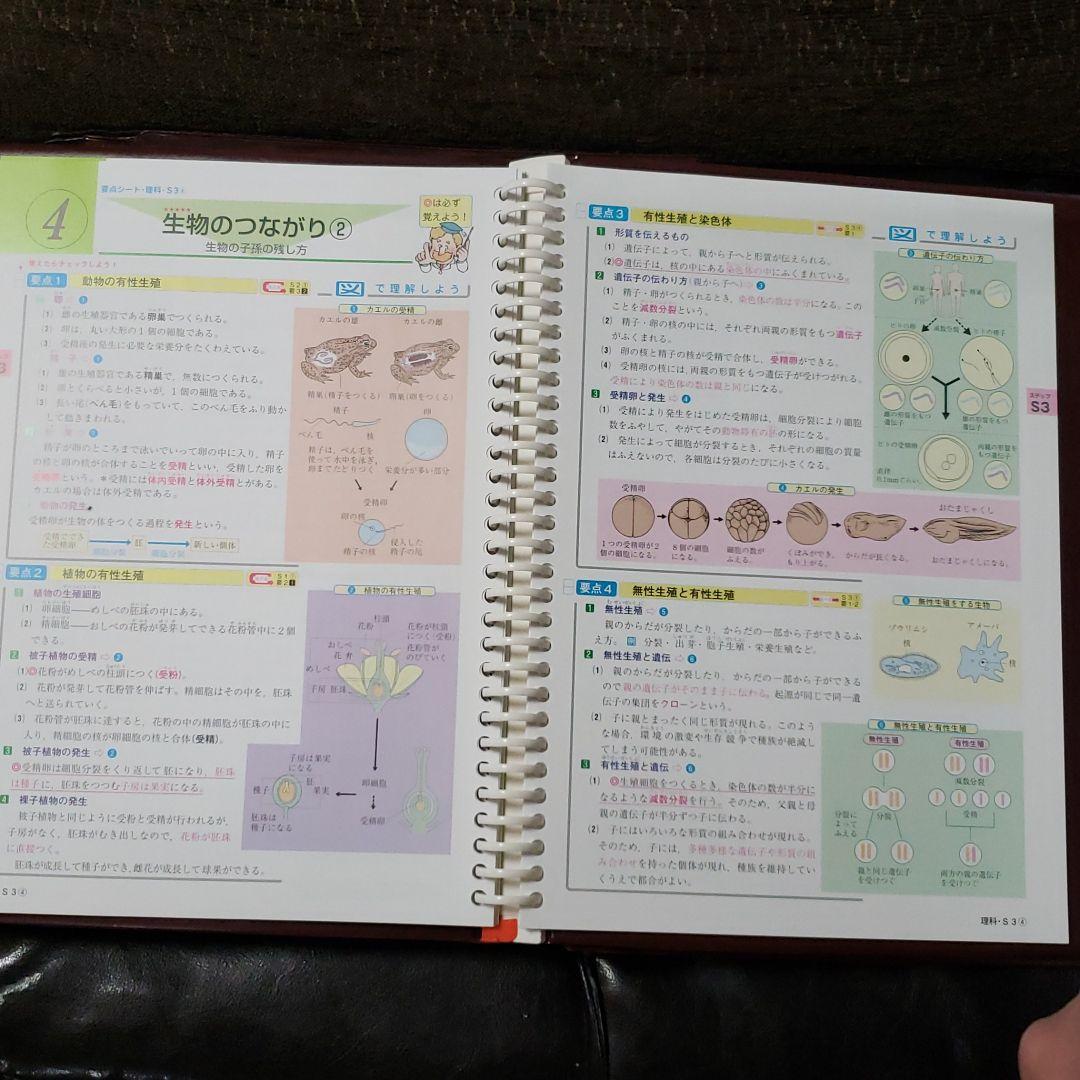 4
要点シート・理科・S3④
生物のつながり②
生物の子孫の残し方
◎は必ず
覚えよう!
覚えたらチェックしよう!
要点1 動物の有性生殖
図で理解しよう
(1) 雌の生殖器官である卵巣でつくられる。
(2) 卵は、丸い大形の1個の細胞である。
(3) 受精後の発生に必要な栄養分をたくわえている。
(1) 雄の生殖器官である精巣で、無数につくられる。
(2) 卵とくらべると小さいが、1個の細胞である。
(3) 長い尾(べん毛)をもっていて、このべん毛をふり動か
して動きまわれる。
精子が卵のところまで泳いでいって卵の中に入り、精子
の核と卵の核が合体することを受精といい、受精した卵を
受精卵という。*受精には体内受精と体外受精とがある。
カエルの場合は体外受精である。
動物の発生
受精卵が生物の体をつくる過程を発生という。
受精でで
きた受精卵
細胞分裂
胚
細胞分裂
新しい個体
① カエルの受精
カエルの雄 カエルの雌
精巣(精子をつくる) 卵巣(卵をつくる)
精子 卵
べん毛 核
精子は、べん毛を
使って水中を泳ぎ、
卵までたどりつく
栄養分が多い部分
受精卵
卵の核
精子の核
侵入した
精子の尾
要点2 植物の有性生殖
1 植物の生殖細胞
(1) 卵細胞——めしべの胚珠の中にある。
(2) 精細胞——おしべの花粉が発芽してできる花粉管中に2個
できる。
2 被子植物の受精⇨②
(1)◎花粉がめしべの柱頭につく(受粉)。
(2) 花粉が発芽して花粉管を伸ばす。精細胞はその中を、胚珠
へと送られていく。
(3) 花粉管が胚珠に達すると、花粉の中の精細胞が胚珠の中に
入り、精細胞の核が卵細胞の核と合体(受精)。
3 被子植物の発生⇨②
◎受精卵は細胞分裂をくり返して胚になり、胚珠
は種子に、胚珠をつつむ子房は果実になる。
4 裸子植物の発生
被子植物と同じように受粉と受精が行われるが、
子房がなく、胚珠がむき出しなので、花粉が胚珠
に直接つく。
胚珠が成長して種子ができ、雌花が成長して球果ができる。
② 植物の有性生殖
柱頭
花粉
花粉が柱頭
につく(受粉)
花粉管が
のびていく
おしべ
花弁
めしべ
子房 胚珠
子房は果実
になる
種子
胚
果実
胚珠は
種子になる
卵細胞
受精卵
S3④
要点3 有性生殖と染色体
図で理解しよう
1 形質を伝えるもの
(1) 遺伝子によって、親から子へと形質が伝えられる。
(2)◎遺伝子は、核の中にある染色体の中にふくまれている。
2 遺伝子の伝わり方(親から子へ)⇨③
(1) 精子・卵がつくられるとき、染色体の数は半分になる。この
ことを減数分裂という。
(2) 精子・卵の核の中には、それぞれ両親の形質をもつ遺伝子
がふくまれる。
(3) 卵の核と精子の核が受精で合体し、受精卵ができる。
(4) 受精卵の核には、両親の形質をもつ遺伝子が受けつがれる。
受精により染色体の数は親と同じになる。
3 受精卵と発生⇨④
(1) 受精により発生をはじめた受精卵は、細胞分裂により細胞
数をふやして、やがてその動物特有の胚の形になる。
(2) 発生によって細胞が分裂するとき、それぞれの細胞の質量
はふえないので、各細胞は分裂のたびに小さくなる。
③ 遺伝子の伝わり方
減数分裂
ヒトの卵 ヒトの精子
雌の形質をも
つ遺伝子
雄の形質をも
つ遺伝子
ヒトの受精卵
両親の形質を
もつ遺伝子
ステップ
S3
④ カエルの発生
受精卵
おたまじゃくし
1つの受精卵が2
個の細胞になる。
8個の細胞
になる。
細胞の数が
ふえる。
くぼみができ、
もり上がる。
からだが長くなる。
おたまじゃくしになる。
要点4 無性生殖と有性生殖
1 無性生殖⇨⑤
親のからだが分裂したり、からだの一部から子ができるふ
え方。例 分裂・出芽・胞子生殖・栄養生殖など。
2 無性生殖と遺伝⇨⑥
(1) 親のからだが分裂したり、からだの一部から子ができる
ので親の遺伝子がそのまま子に伝わる。起源が同じで同一遺
伝子の集団をクローンという。
(2) 子に親とまったく同じ形質が現れる。このよう
な場合、環境の激変や生存競争で種族が絶滅し
てしまう可能性がある。
3 有性生殖と遺伝⇨⑥
(1) ◎生殖細胞をつくるとき、染色体の数が半分に
なるような減数分裂を行う。そのため、父親と母
親の遺伝子が半分ずつ子に伝わる。
(2) 子にはいろいろな形質の組み合わせが現れる。
そのため、子には、多種多様な遺伝子や形質の組
み合わせを持った個体が現れ、種族を維持してい
くうえで都合がよい。
⑤ 無性生殖をする生物
ゾウリムシ
核
アメーバ
核
⑥ 無性生殖と有性生殖
無性生殖
有性生殖
減数分裂
分裂
受精
分裂に
よって
ふえる
親と同じ遺伝子
を受けつぐ
両方の親の遺伝子
を受けつぐ
理科・S3④